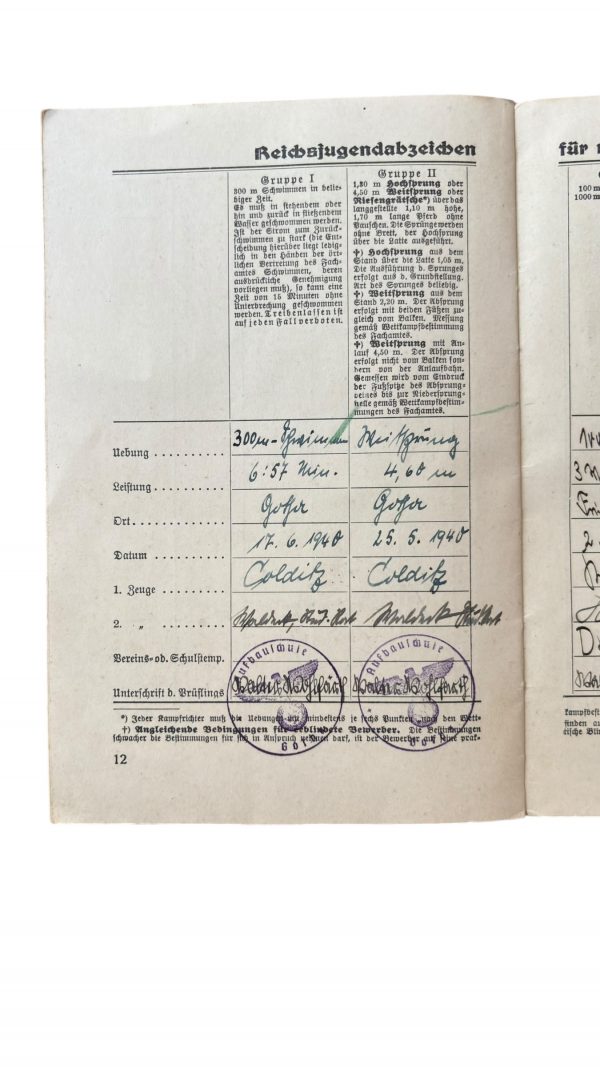 Reichsjugendabzeichen
Gruppe I
300 m Schwimmen in belie-
biger Zeit.
Es muß in stehendem oder
hin und zurück in fließendem
Wasser geschwommen werden.
Ist der Strom zum Zurück-
schwimmen zu stark (die Ent-
scheidung hierüber liegt ledig-
lich in den Händen der ört-
lichen Vertretung des Fach-
amtes Schwimmen, deren
ausdrückliche Genehmigung
vorliegen muß), so kann eine
Zeit von 15 Minuten ohne
Unterbrechung geschwommen
werden. Treibenlassen ist
auf jeden Fall verboten.
Gruppe II
1,30 m Hochsprung oder
4,50 m Weitsprung oder
Riesengrätsche*) über das
langgestellte 1,10 m hohe,
1,70 m lange Pferd ohne
Pauschen. Die Sprünge werden
ohne Brett, der Hochsprung
über die Latte ausgeführt.
†) Hochsprung aus dem
Stand über die Latte 1,05 m.
Die Ausführung d. Sprunges
erfolgt aus d. Grundstellung.
Art des Sprunges beliebig.
†) Weitsprung aus dem
Stand 2,20 m. Der Absprung
erfolgt mit beiden Füßen zu-
gleich vom Balken. Messung
gemäß Wettkampfbestimmung
des Fachamtes.
†) Weitsprung mit An-
lauf 4,50 m. Der Absprung
erfolgt nicht vom Balken son-
dern von der Anlaufbahn.
Gemessen wird vom Eindruck
der Fußspitze des Absprung-
beines bis zur Niedersprung-
stelle gemäß Wettkampfbestim-
mungen des Fachamtes.
Uebung 300m-Schwimmen Weitsprung
Leistung 6:57 Min. 4,60 m
Ort Gotha Gotha
Datum 17. 6. 1940 25. 5. 1940
1. Zeuge Colditz Colditz
2. „ Waldeck, Stud.Rat Waldeck Stud.Rat
Vereins- od. Schulstemp. Aufbauschule Gotha Aufbauschule Gotha
Unterschrift d. Prüflings Walter Walter
*) Jeder Kampfrichter muß die Uebungen mit mindestens je sechs Punkten nach den Wett-
†) Angleichende Bedingungen für erblindete Bewerber. Die Bestimmungen
schwächer die Bestimmungen für sich in Anspruch nehmen darf, ist der Bewerber auf seine prak-
12
für
100 m
1000 m
kampfbest
finden au
tische Blin